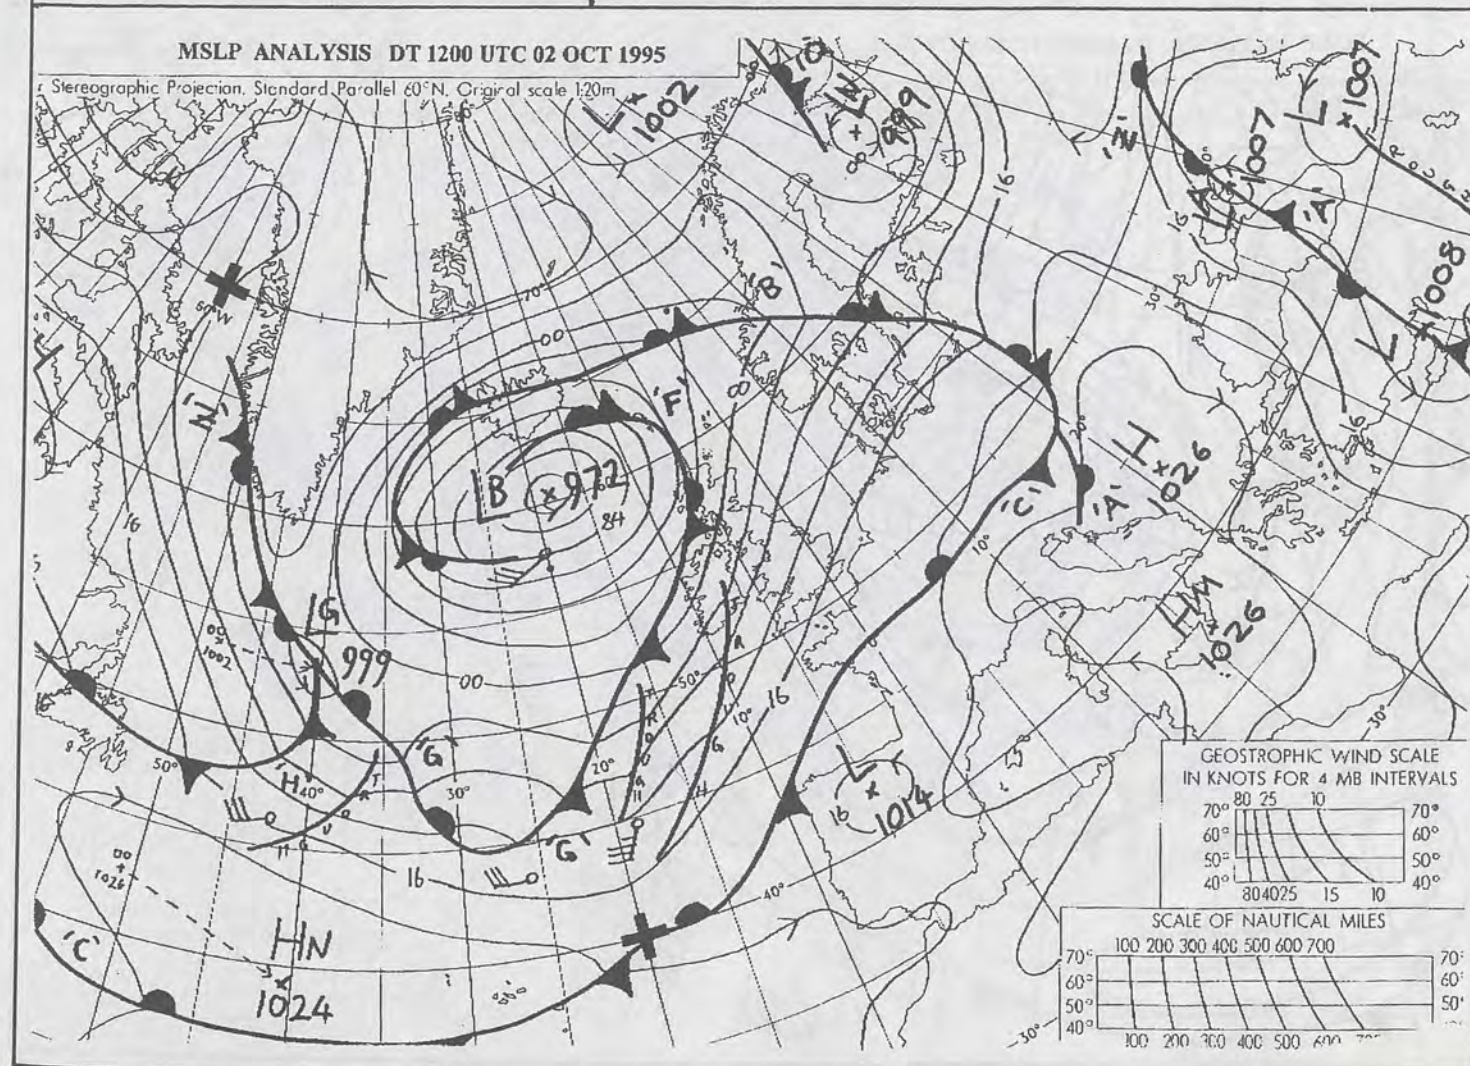 MSLP ANALYSIS DT 1200 UTC 02 OCT 1995
Stereographic Projection, Standard Parallel 60°N, Original scale 1:20m
L
1002
'O'
L
999
16
'Z'
L
1007
L
1007
'A'
16
L
1008
16
60°W
70°
'B'
00
'N'
'F'
00
30°
20°
H
1026
L B
972
84
16
'C'
'A'
10°
HM
1026
LG
999
00
1002
00
50°
10°
16
TROUGH
'G'
50°
'H'
40°
30°
20°
'G'
L
16
1014
TROUGH
16
00
1026
HN
1024
'C'
40°
30°
30°
GEOSTROPHIC WIND SCALE
IN KNOTS FOR 4 MB INTERVALS
80 25 10
70° 70°
60° 60°
50° 50°
40° 40°
80 40 25 15 10
SCALE OF NAUTICAL MILES
100 200 300 400 500 600 700
70°
60° 60°
50° 50°
40°
100 200 300 400 500 600